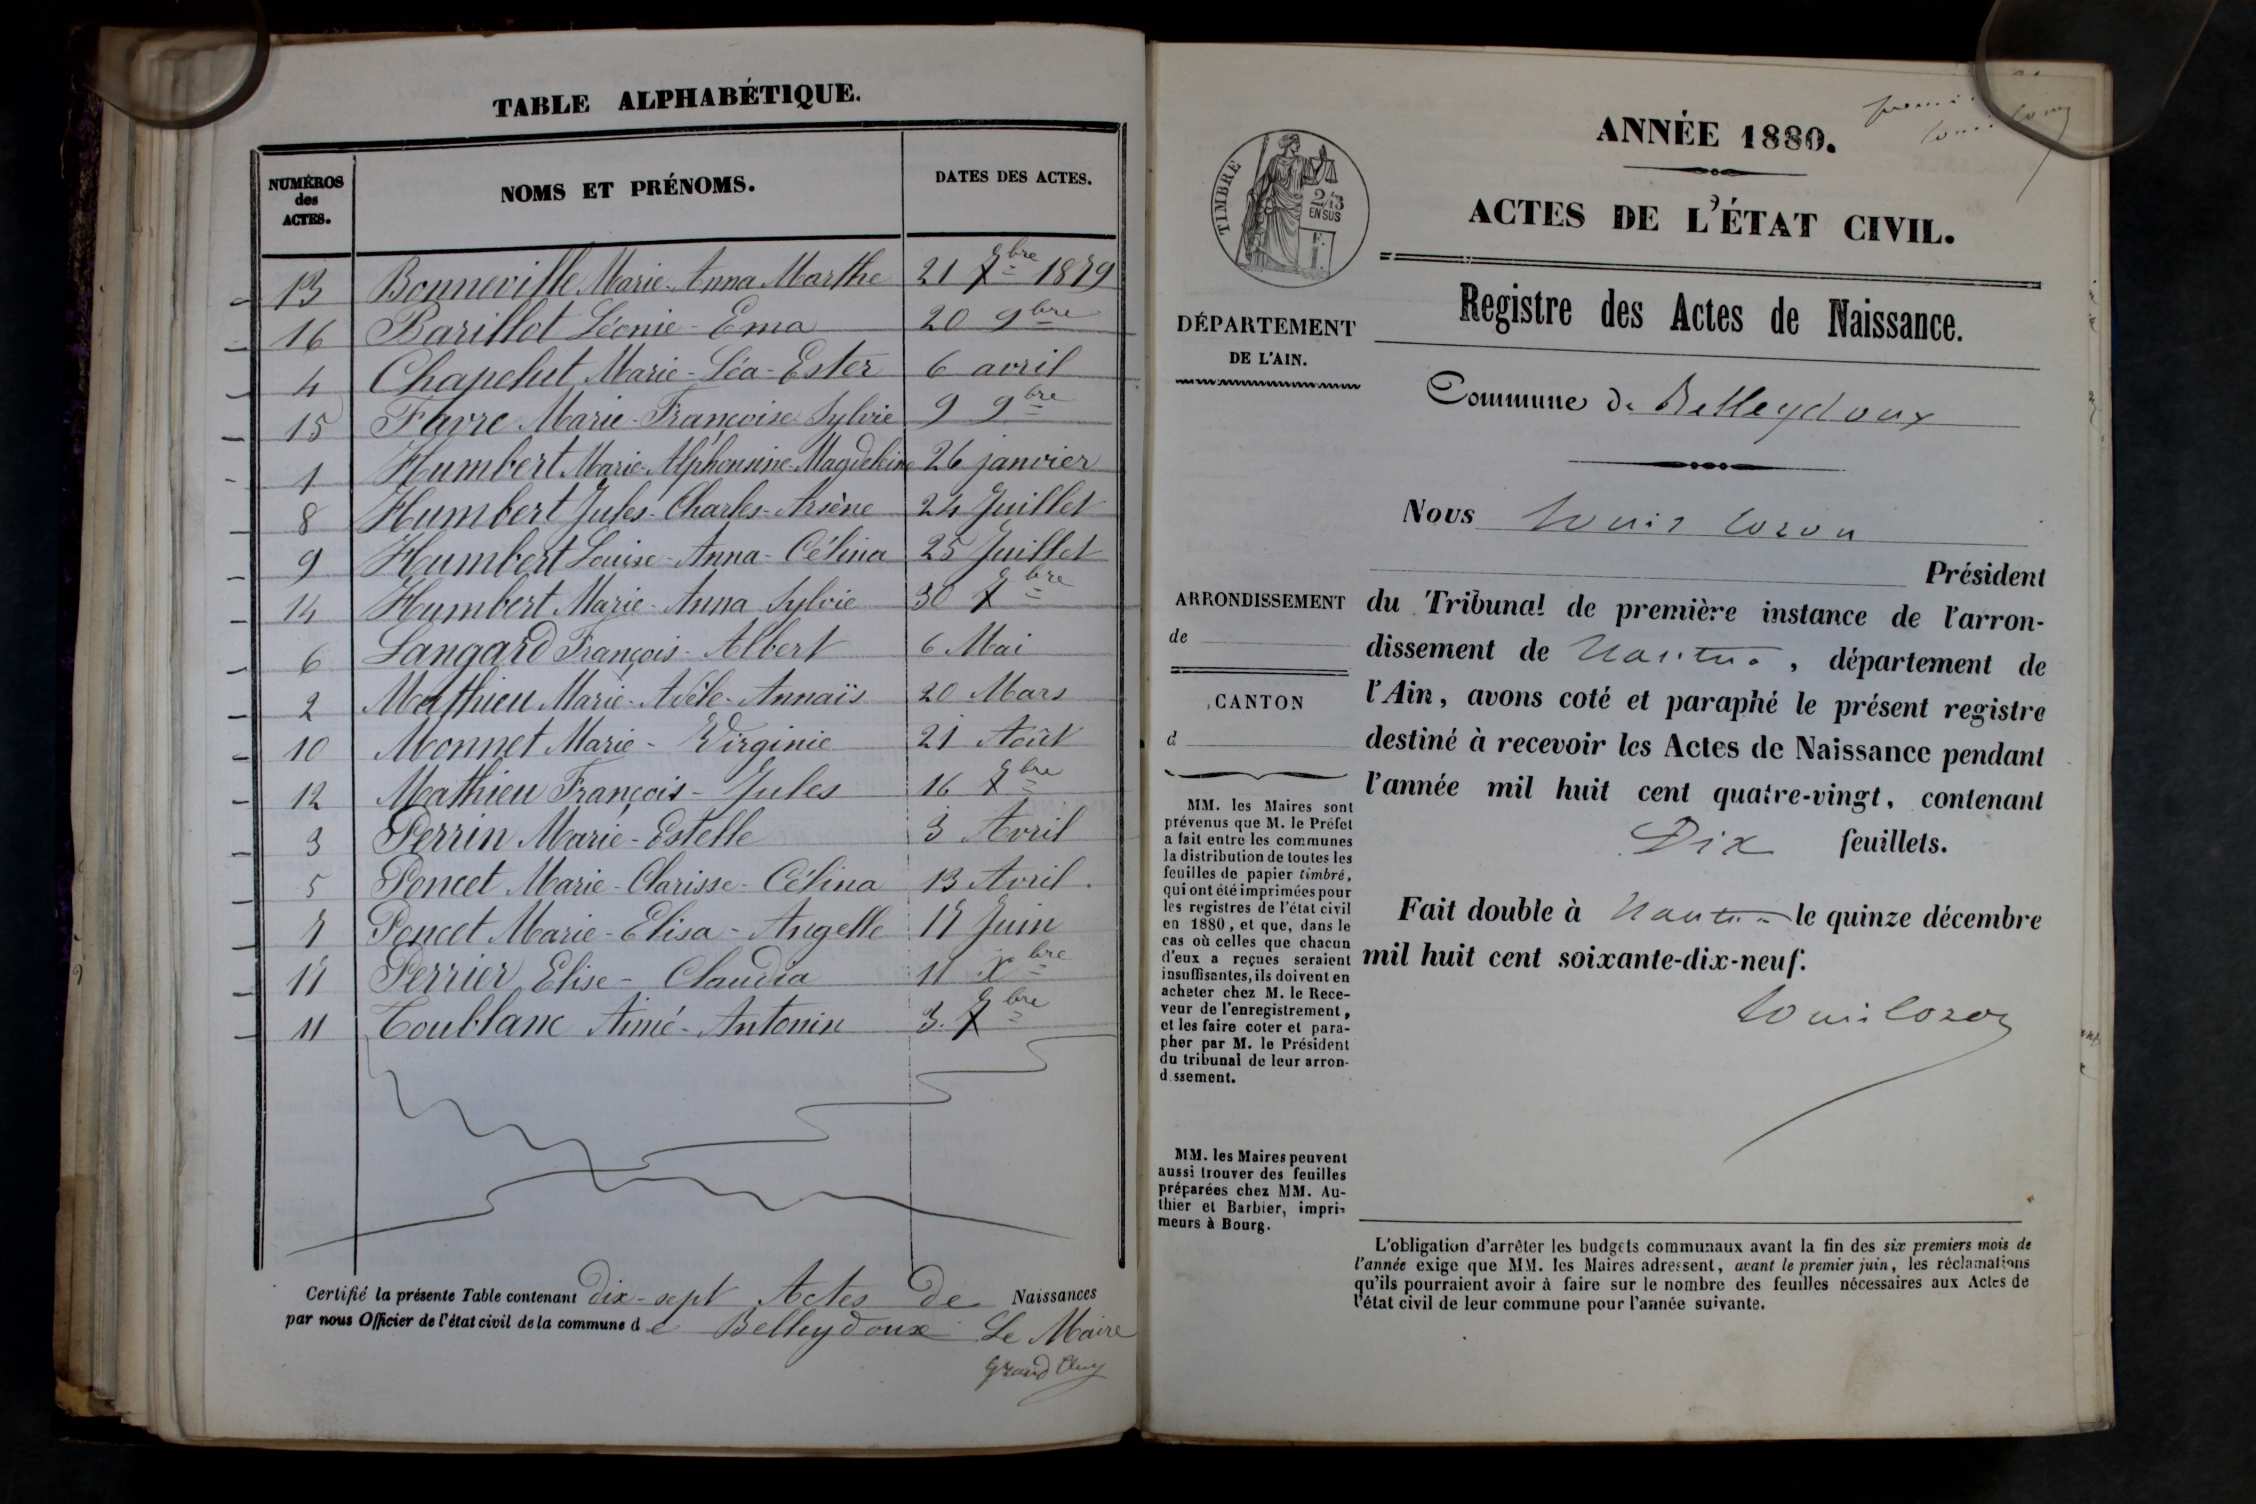 TABLE ALPHABÉTIQUE.
NUMÉROS des ACTES. NOMS ET PRÉNOMS. DATES DES ACTES.
13 Bonneville Marie-Anna Marthe 21 7bre 1879
16 Barillot Léonie-Ema 20 9bre
4 Chapelut Marie-Léa-Ester 6 avril
15 Favre Marie-Françoise Sylvie 9 9bre
1 Humbert Marie-Alphonsine-Magdeleine 26 janvier
8 Humbert Jules-Charles-Arsène 24 Juillet
9 Humbert Louise-Anna-Célina 25 Juillet
14 Humbert Marie-Anna Sylvie 30 7bre
6 Langard François-Albert 6 Mai
2 Mathieu Marie-Adèle-Annaïs 20 Mars
10 Monnet Marie-Virginie 21 Août
12 Mathieu François-Jules 16 7bre
3 Perrin Marie-Estelle 3 Avril
5 Poncet Marie-Clarisse-Célina 13 Avril.
7 Poncet Marie-Elisa-Angelle 17 Juin
17 Perrier Elise-Claudia 11 Xbre
11 Toublanc Aimé-Antonin 3. 7bre
Certifié la présente Table contenant dix-sept Actes de Naissances
par nous Officier de l'état civil de la commune de Belleydoux Le Maire
ANNÉE 1880.
TIMBRE
2/13
EN SUS
ACTES DE L'ÉTAT CIVIL.
Registre des Actes de Naissance.
DÉPARTEMENT
DE L'AIN.
Commune de Belleydoux
Nous Louis Cozon
Président
ARRONDISSEMENT
de
CANTON
d
du Tribunal de première instance de l'arron-
dissement de Nantua, département de
l'Ain, avons coté et paraphé le présent registre
destiné à recevoir les Actes de Naissance pendant
l'année mil huit cent quatre-vingt, contenant
Dix feuillets.
Fait double à Nantua le quinze décembre
mil huit cent soixante-dix-neuf.
Louis Cozon
MM. les Maires sont
prévenus que M. le Préfet
a fait entre les communes
la distribution de toutes les
feuilles de papier timbré,
qui ont été imprimées pour
les registres de l'état civil
en 1880, et que, dans le
cas où celles que chacun
d'eux a reçues seraient
insuffisantes, ils doivent en
acheter chez M. le Rece-
veur de l'enregistrement,
et les faire coter et para-
pher par M. le Président
du tribunal de leur arron-
dissement.
MM. les Maires peuvent
aussi trouver des feuilles
préparées chez MM. Au-
thier et Barbier, impri-
meurs à Bourg.
L'obligation d'arrêter les budgets communaux avant la fin des six premiers mois de
l'année exige que MM. les Maires adressent, avant le premier juin, les réclamations
qu'ils pourraient avoir à faire sur le nombre des feuilles nécessaires aux Actes de
l'état civil de leur commune pour l'année suivante.